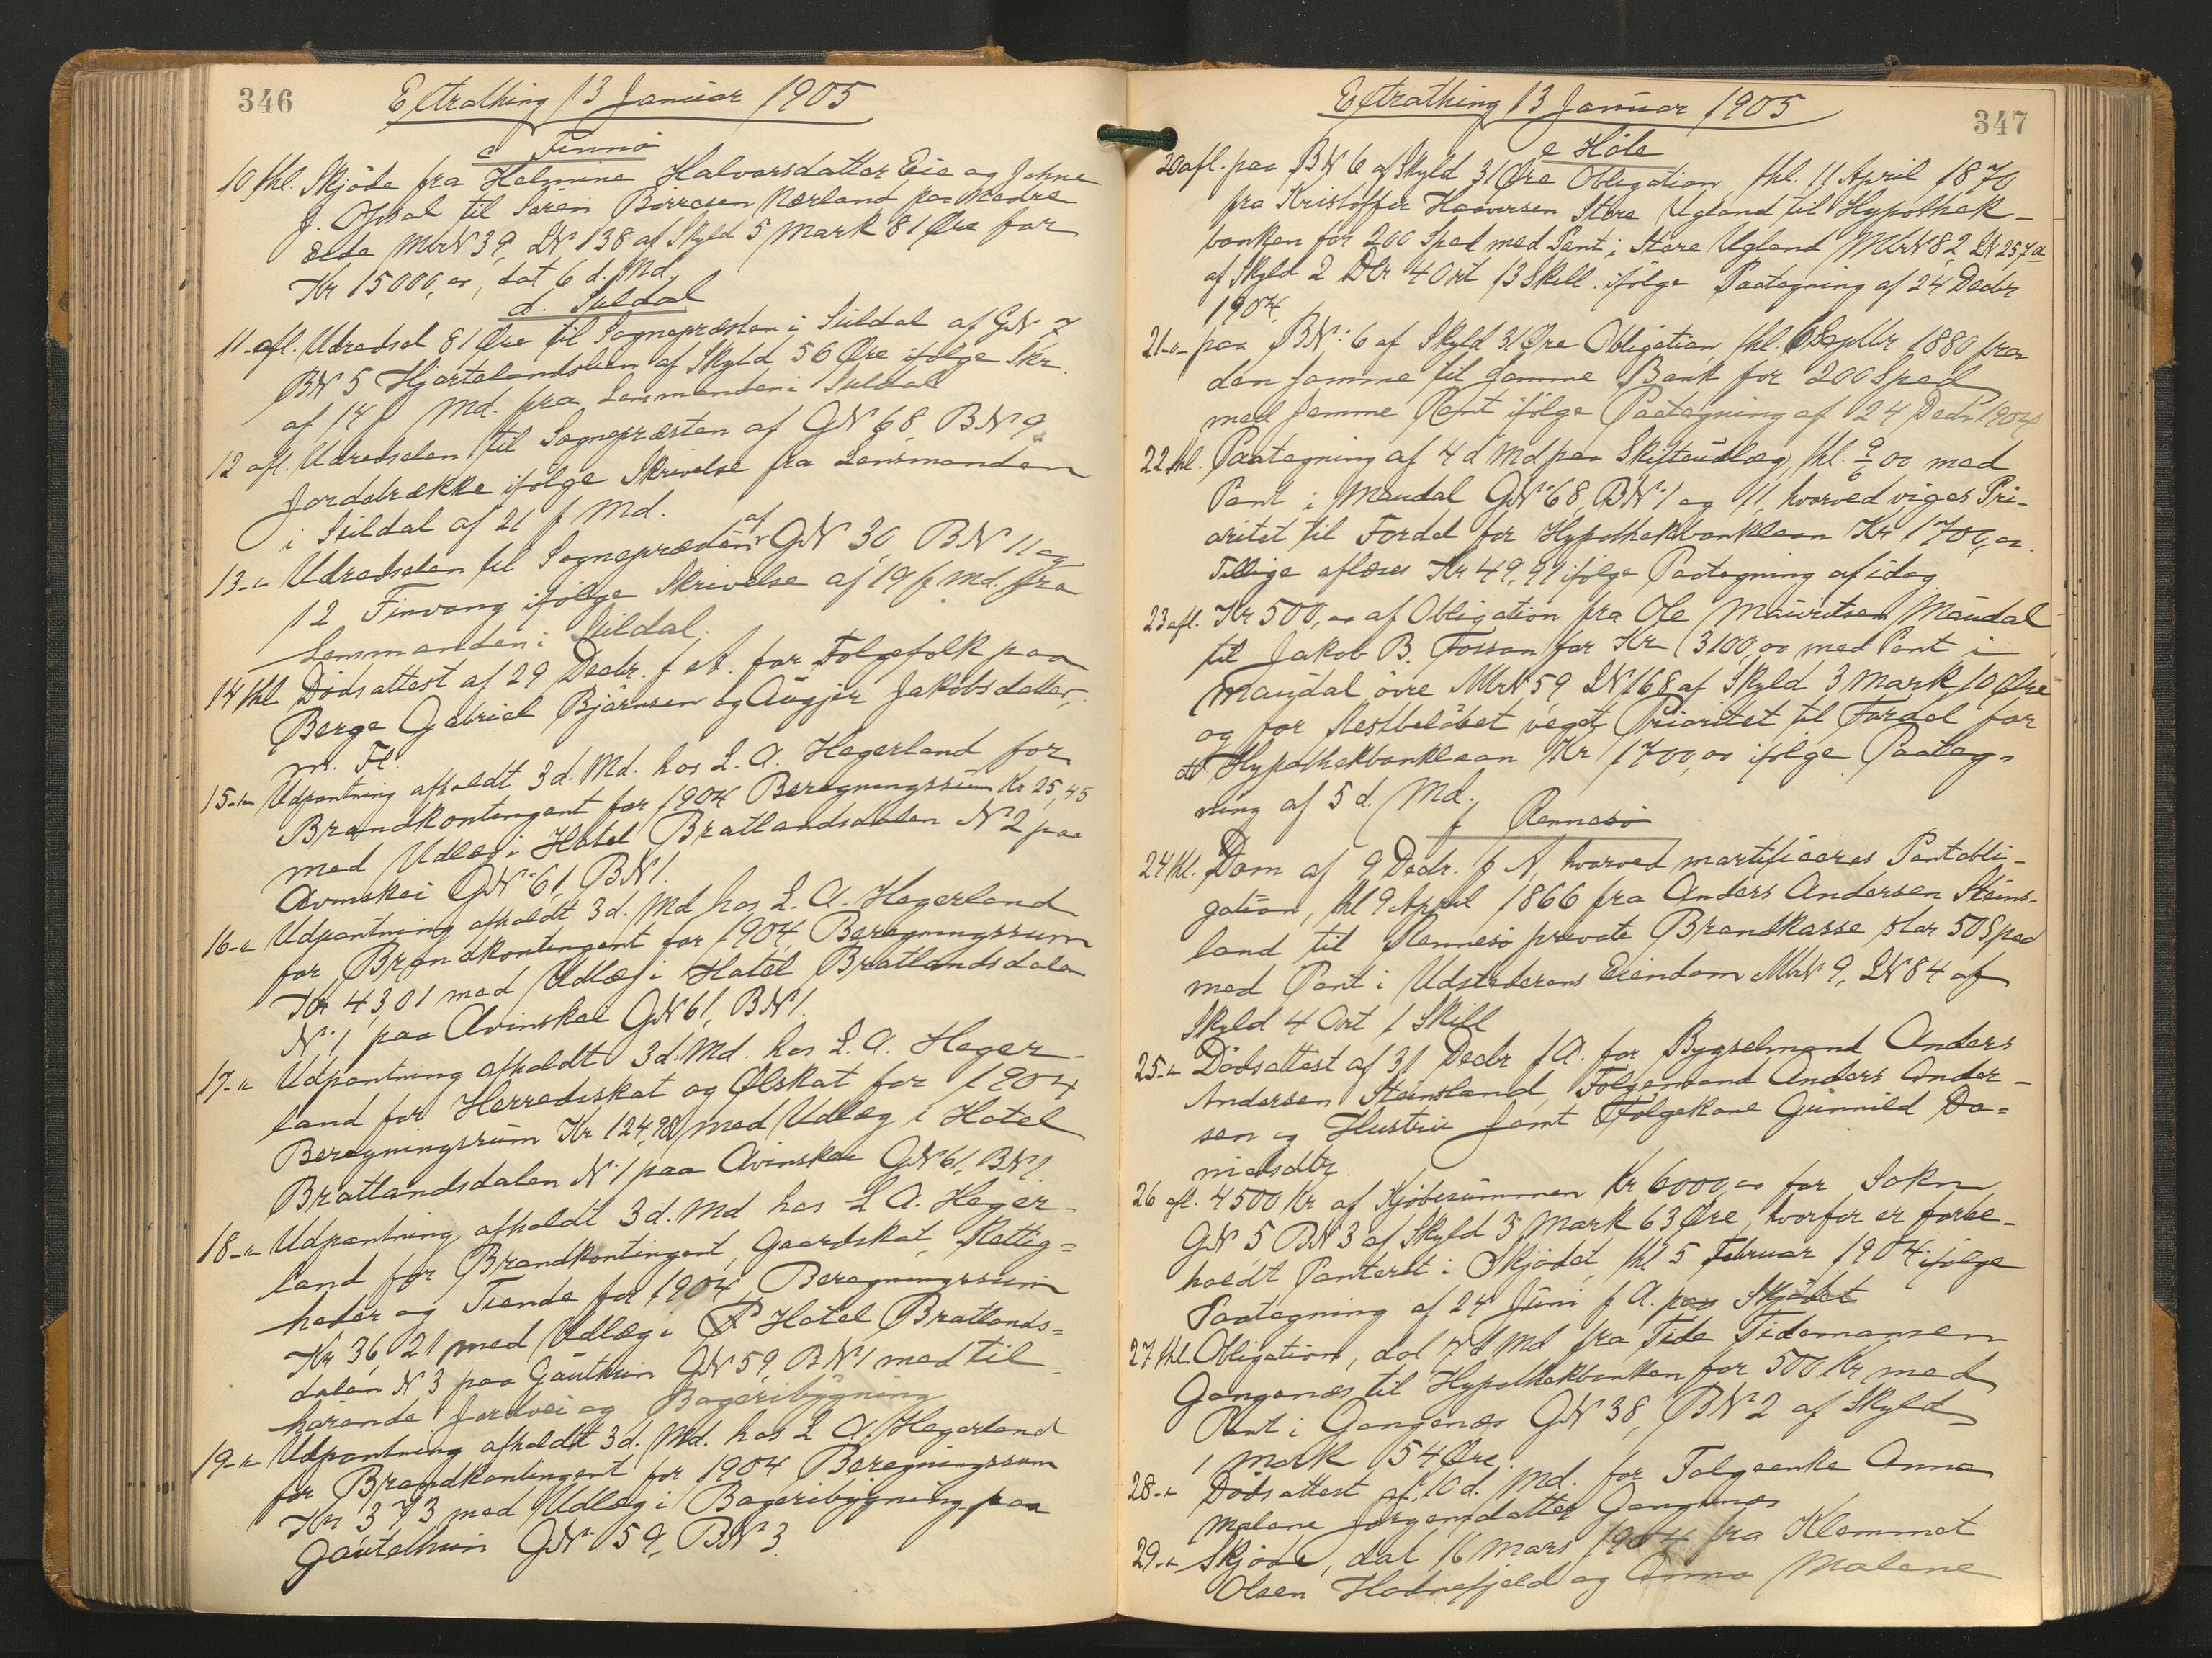 346
Extrathing 13 Januar 1905
c Finnö
10 thl. Skjöde fra Helmine Halvorsdatter Eie og Johne
J. Opsal til Sören Börresen Nærland paa Nedre
Mtr№39, L№138 af Skyld 5 Mark 81 Øre for
Kr 15000,00, dat 6 d. Md.
d. Suldal
11-afl. Udredsel 81 Øre til Sognepræsten i Suldal af G№ 7
B№5 Hjortelandslien af Skyld 56 Øre ifölge Skr.
af 14 f Md. fra Lensmanden i Suldal
12 afl. Udredselen til Sognepræsten af G№ 68, B№9
Jordebrække ifölge Skrivelse fra Lensmanden
i Suldal af 21 f Md.
13-"- Udredselen til Sognepræsten af G№ 30, B№ 11 og
12 Finvang ifölge Skrivelse af 19 f Md. fra
Lensmanden i Suldal.
14 thl. Dödsattest af 29 Decbr. f A. for Folgefolk paa
Berge Gabriel Björnsen og Augjer Jakobsdatter,
m. Fl.
15-"- Udpantning afholdt 3 d. Md. hos L. A. Hegerland for
Brandkontingent for 1904 Beregningssum Kr 25,45
med Udlæg i Hotel Bratlandsdalen N 2 paa
Avinskei G№61, B№1.
16-"- Udpantning afholdt 3 d. Md hos L. A. Hegerland
for Brandkontingent for 1904 Beregningssum
Kr 43,01 med Udlæg i Hotel Bratlandsdalen
N: 1 paa Avinskei G№61, B№1.
17-"- Udpantning afholdt 3 d. Md. hos L. A. Heger-
land for Herredsskat og Ølskat for 1904
Beregningssum Kr 124,98 med Udlæg i Hotel
Bratlandsdalen N: 1 paa Avinskei G№61, B№1.
18-"- Udpantning afholdt 3 d. Md hos L A. Heger-
land for Brandkontingent, Gaardskat, Rettig=
heder og Tiende for 1904, Beregningssum
Kr 36,21 med Udlæg i Hotel Bratlands=
dalen N 3 paa Gautehun G№59, B№1 med til-
hörende Jordvei og Bageribygning
19-"- Udpantning afholdt 3 d. Md. hos L A. Hegerland
for Brandkontingent for 1904 Beregningssum
Kr 3,73 med Udlæg i Bageribygning paa
Gautehun G№ 59, B№ 3.
347
Extrathing 13 Januar 1905
e Höle
20 afl. paa B№ 6 af Skyld 31 Øre Obligation, thl. 11 April 1870
fra Kristoffer Haaversen Store Ugland til Hypothek-
banken for 200 Spd med Pant i Store Ugland Mtr№82 L№257a
af Skyld 2 Dlr 4 Ort 13 Skill. ifölge Paategning af 24 Decbr
1904.
21-"- paa B№: 6 af Skyld 31 Øre Obligation thl. 6 Septbr 1880 fra
den samme til samme Bank for 200 Spd
med samme Pant ifölge Paategning af 24 Decbr 1904
22 thl. Paategning af 4 d Md paa Skifteudlæg, thl. 9/6 00 med
Pant i Maudal G№68, B№1 og 11, hvorved viges Pri-
oritet til Fordel for Hypothekbanklaan Kr 1700,00.
Tillige aflæses Kr 49,91 ifölge Paategning af idag
23 afl. Kr 500,00 af Obligation fra Ole Mauritsen Maudal
til Jakob B. Fossan for Kr 3100,00 med Pant i
Maudal övre Mtr№59, L№168 af Skyld 3 Mark 10 Øre
og for Restbelöbet veget Prioritet til Fordel for
et Hypothekbanklaan Kr 1700,00 ifölge Paateg=
ning af 5 d. Md.
f Rennesö
24 thl. Dom af 9 Decbr. f A, hvorved mortificeres Pantobli-
gation, thl 9 April 1866 fra Anders Andersen Steins-
land til Rennesö private Brandkasse stor 50 Spd
med Pant i Udstederens Eiendom Mtr№ 9, L№84 af
Skyld 4 Ort 1 Skill
25-"- Dödsattest af 31 Decbr f A. for Bygselmand Anders
Andersen Steinsland, Folgemand Anders Ander-
sen og Hustru samt Folgekone Gunnild Da=
nielsdtr.
26 afl. 4500 Kr af Kjöbesummen Kr 6000,00 for Sokn
G№ 5 B№3 af Skyld 3 Mark 63 Øre, hvorfor er forbe-
holdt Panteret i Skjödet, thl 5 Februar 1904 ifölge
Paategning af 24 Juni f A. paa Skjödet
27 thl. Obligation, dat 7 d Md fra Tide Tidemansen
Gangenæs til Hypothekbanken for 500 Kr med
Pant i Gangenæs G№ 38, B№2 af Skyld
1 Mark 54 Øre.
28-"- Dödsattest af 10 d. Md. for Folgeenke Anna
Malene Jörgensdatter Gangenæs
29-"- Skjöde, dat 16 Mars 1904 fra Klemmet
Olsen Hodnefjeld og Anna Malene